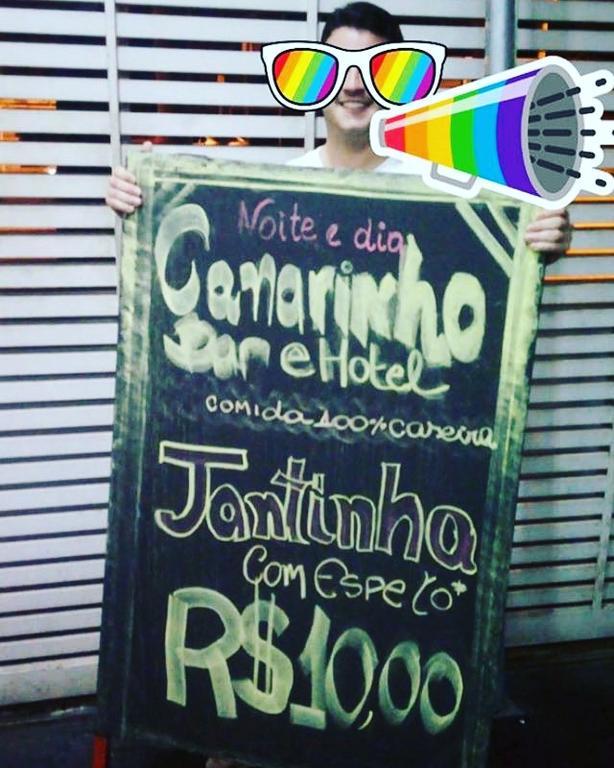 Noite e dia
Canarinho
Bar e Hotel
comida 100% caseira
Jantinha
com Espeto*
R$10,00